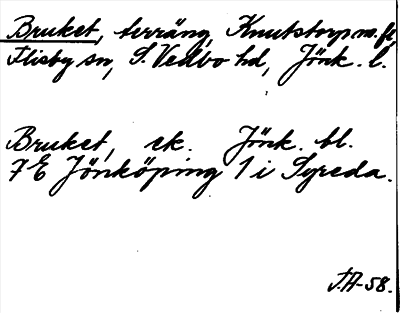 Bruket, terräng, Knutstorp m. fl,
Flisby sn, S. Vedbo hd, Jönk. l.
Bruket, ek. Jönk. bl.
7E Jönköping 1 i Syreda.
J.A-58.